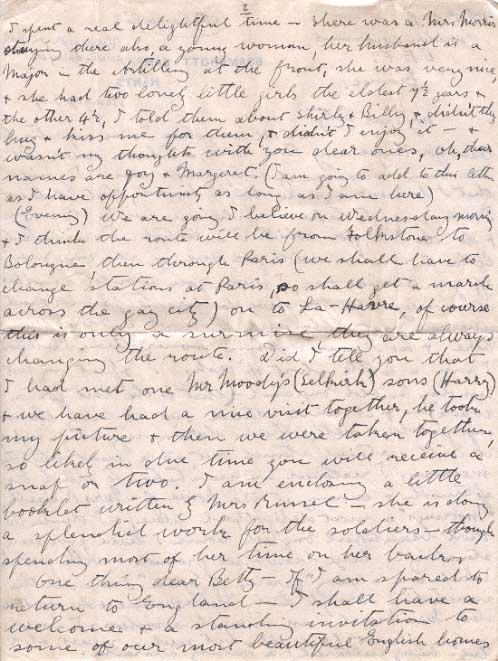 2
I spent a real delightful time – There was a Mrs Morris
staying there also, a young woman, her husband is a
Major in the Artillery at the front, she was very nice,
& she had two lovely little girls the eldest 7½ years &
the other 4½, I told them about Shirly & Billy, & didn't they
hug & kiss me for them, & didn't I enjoy it – &
wasn't my thoughts with you dear ones, oh, their
names are Joy & Margaret. (I am going to add to this letter
as I have opportunity as long as I am here)
(Evening) We are going I believe on Wednesday morning
& I think the route will be from Folkstone to
Bolougne, then through Paris (we shall have to
change stations at Paris, so shall get a march
across the gay city) on to La-Havre, of course
this is only a surmise they are always
changing the route. Did I tell you that
I had met one Mr Moody's (Selkirk) sons (Harry)
& we have had a nice visit together, he took
my picture & then we were taken together,
so likely in due time you will receive a
snap or two. I am enclosing a little
booklet written by Mrs – she is doing
a splendid work for the soldiers – though
spending most of her time on her back.
One thing dear Betty – If I am spared to
return to England – I shall have a
welcome & a standing invitation to
some of our most beautiful English homes